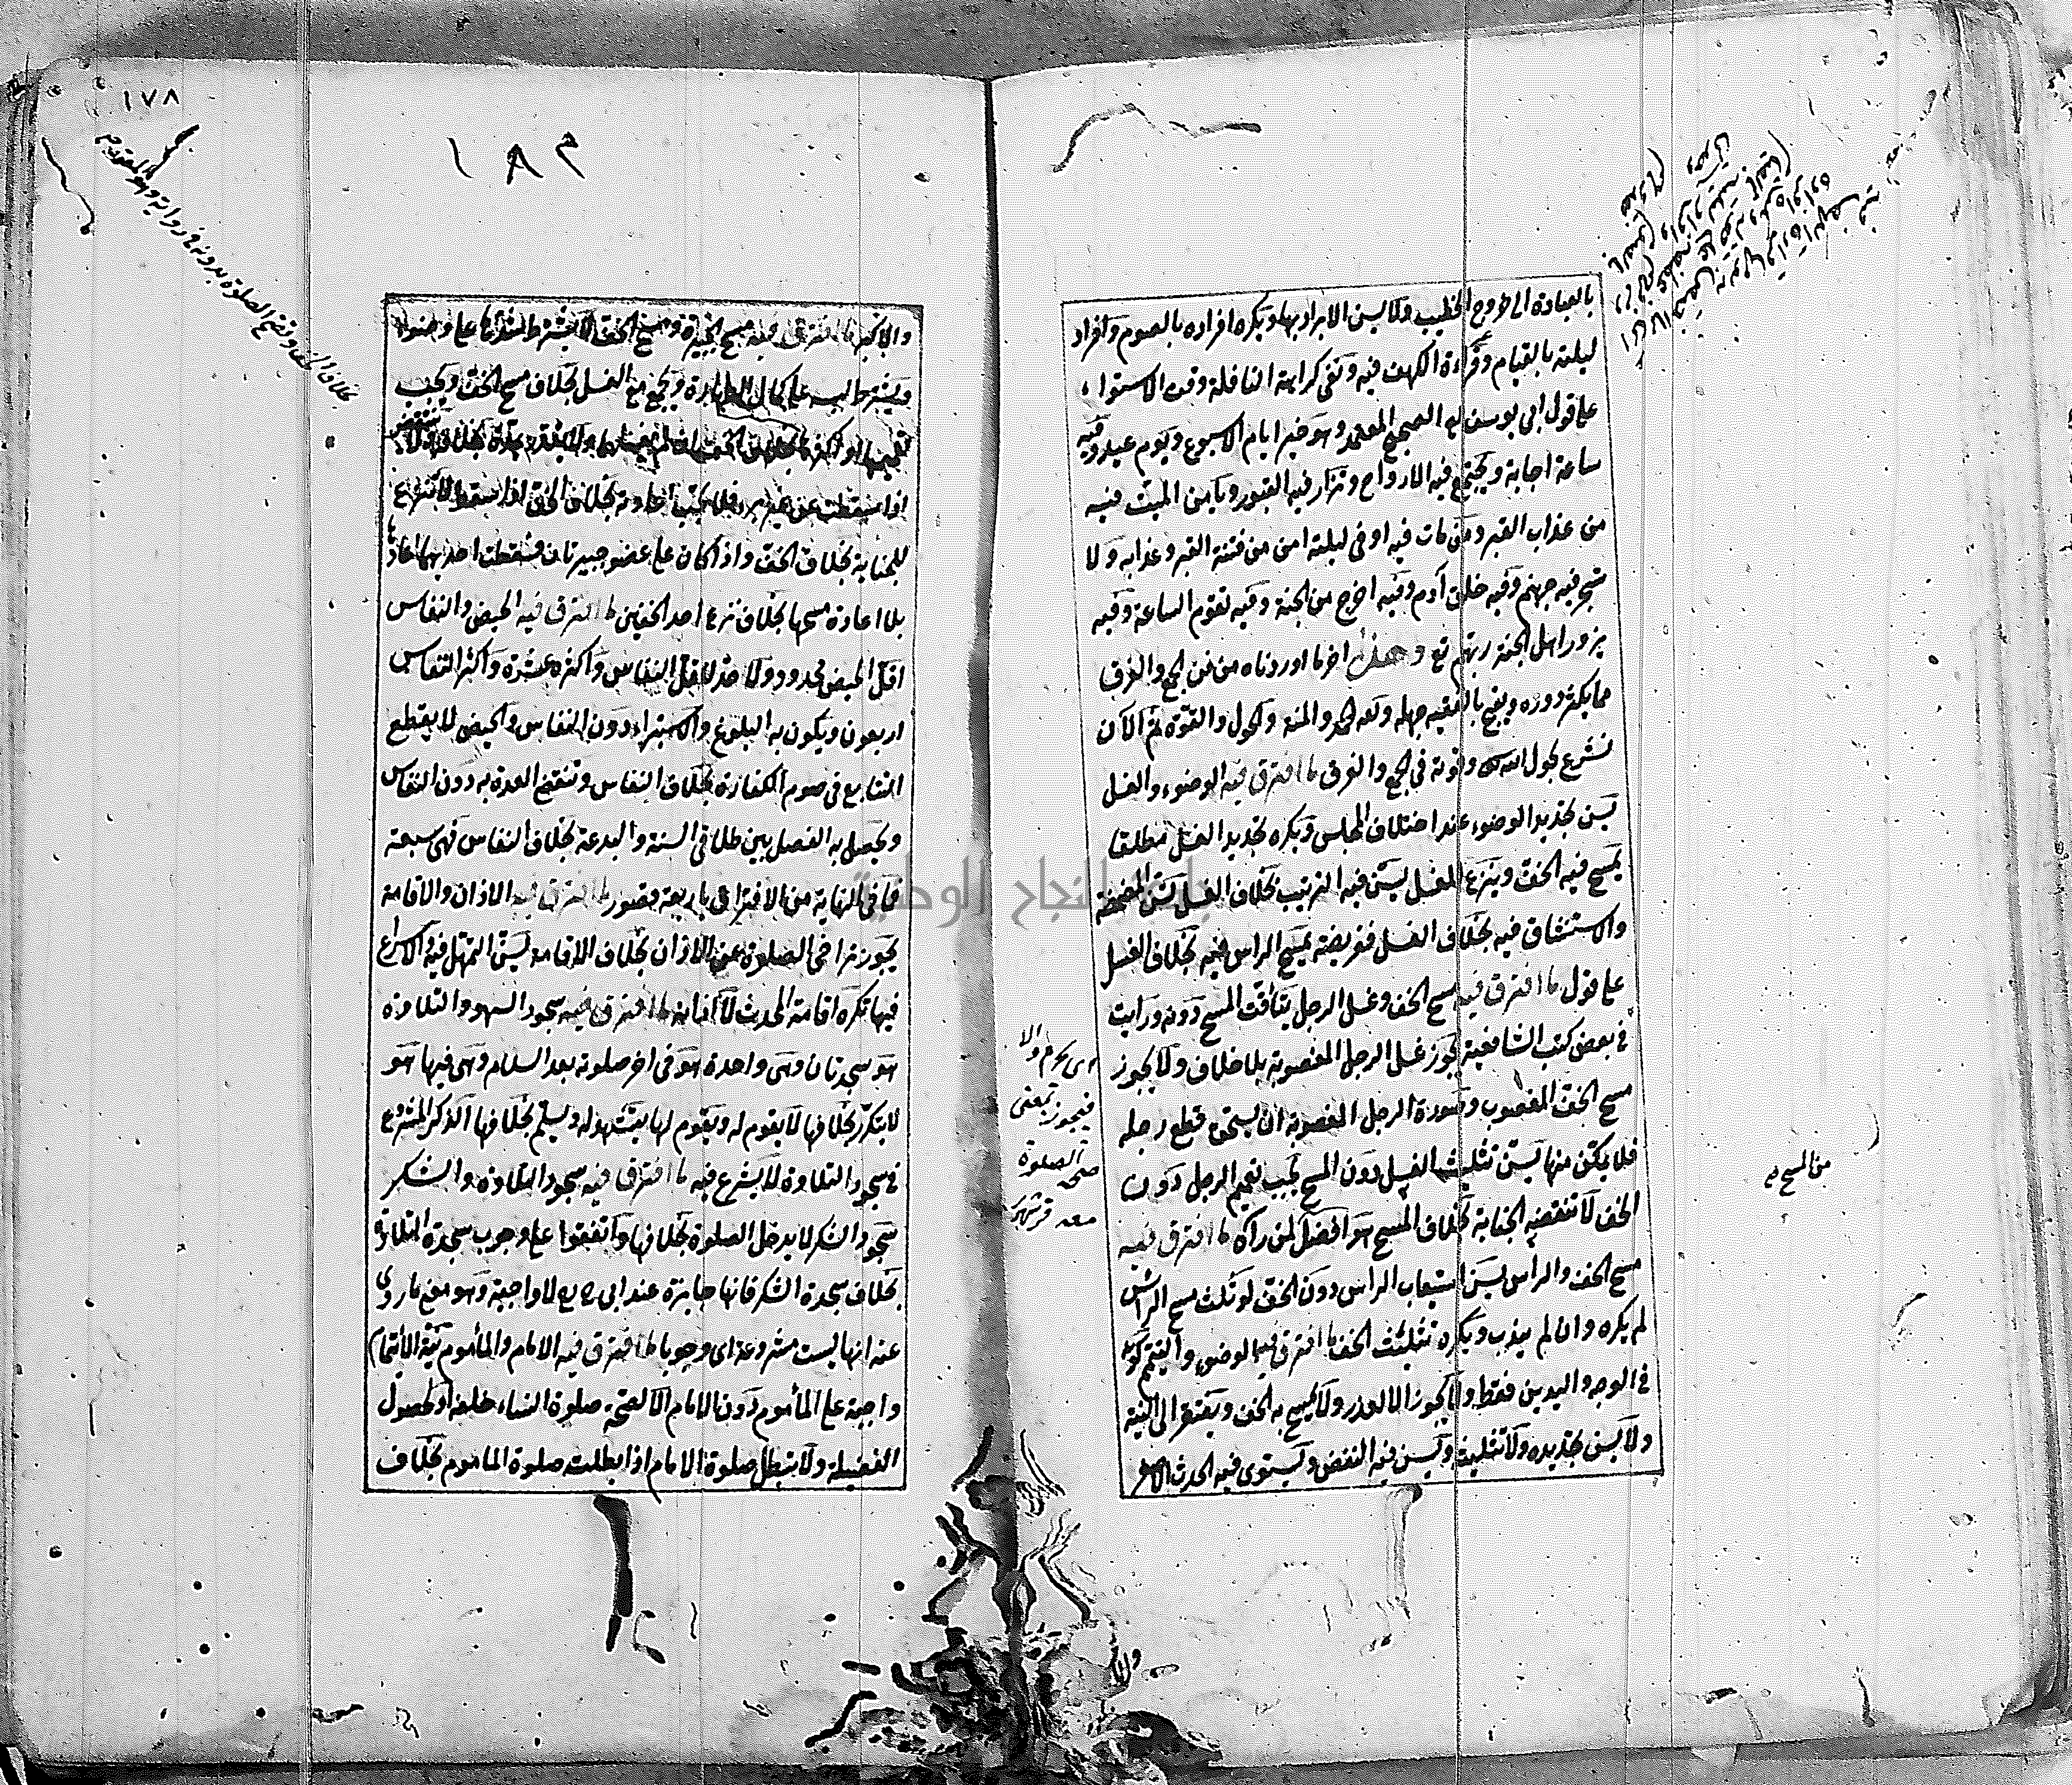 بالعبادة الى خروج الخطيب ولا يسن الابراد بها ويكره افراده بالصوم وافراد
ليلته بالقيام وقراءة الكهف فيه ونفى كراهة النافلة وقت الاستواء
على قول ابى يوسف المصحح المعتمد وهو خير ايام الاسبوع ويوم عيد وفيه
ساعة اجابة ويجتمع فيه الارواح وتزار فيه القبور ويامن الميت فيه
من عذاب القبر ومن مات فيه او فى ليلته امن من فتنة القبر وعذابه ولا
تسجر فيه جهنم وفيه خلق آدم وفيه اخرج من الجنة وفيه تقوم الساعة وفيه
يزور اهل الجنة ربهم تع وهذا اخر ما اوردناه من فن الجمع والفرق
مما يكثر دوره ويقبح بالفقيه جهله وله الحمد والمنة والحول والقوة ثم الآن
نشرع بحول الله وقوته فى الجمع والفرق ما افترق فيه الوضوء والغسل
يسن تجديد الوضوء عند اختلاف المجلس ويكره تجديد الغسل مطلقا
يمسح فيه الخف وينزع للغسل يسن فيه الترتيب بخلاف الغسل تسن المضمضة
والاستنشاق فيه بخلاف الغسل ففريضة يمسح الراس فيه بخلاف الغسل
على قول ما افترق فيه مسح الخف وغسل الرجل يتأقت المسح دونه ورايت
فى بعض كتب الشافعية يجوز غسل الرجل المغصوبة بلا خلاف ولا يجوز
مسح الخف المغصوب وصورة الرجل المغصوبة ان يستحق قطع رجله
فلا يمكن منها يسن تثليث الغسل دون المسح يجب تعميم الرجل دون
الخف لا تنقضه الجنابة بخلاف المسح هو افضل لمن رآه ما افترق فيه
مسح الخف والراس يسن استيعاب الراس دون الخف لو ثلث مسح الراس
لم يكره وان لم يندب ويكره تثليث الخف ما افترق فيه الوضوء والتيمم كونه
فى الوجه واليدين فقط ولا يجوز الا لعذر ولا يمسح به الخف ويفتقر الى النية
ولا يسن تجديده ولا تثليث ويسن فيه النفض ويستوى فيه الحدث الاصغر
من المسح
اى يحرم والا
فيجوز بمعنى
صحة الصلوة
معه
١٧٨
١٨٣
بخلاف الخف وتصح الصلوة بدونه فى رواية وهو المعتمد
والاكبر ما افترق فيه مسح الجبيرة ومسح الخف لا يشترط شدها على وضوء
ويشترط لبسه على كمال الطهارة ويجمع مع الغسل بخلاف مسح الخف ويجب
تعميمها او اكثرها بخلاف الخف
اذا سقطت عن غير برء فلا يجب اعادته بخلاف الخف اذا سقط لا تنزع
للجنابة بخلاف الخف واذا كان على عضو جبيرتان فسقطت احديهما اعادها
بلا اعادة مسحها بخلاف نزع احد الخفين ما افترق فيه الحيض والنفاس
اقل الحيض محدود ولا حد لاقل النفاس واكثره عشرة واكثر النفاس
اربعون ويكون به البلوغ والاستبراء دون النفاس والحيض لا يقطع
التتابع فى صوم الكفارة بخلاف النفاس وتنقضى العدة به دون النفاس
ويحصل به الفصل بين طلاقى السنة والبدعة بخلاف النفاس فهى سبعة
فما فى النهاية من الافتراق باربعة قصور ما افترق فيه الاذان والاقامة
يجوز تراخى الصلوة عن الاذان بخلاف الاقامة يسن التمهل فيه والاسراع
فيها تكره اقامة المحدث لا اذانه ما افترق فيه سجود السهو والتلاوة
هو سجدتان وهى واحدة هو فى اخر صلوته بعد السلام وهى فيها هو
لا يتكرر بخلافها لا يقوم له ويقوم لها يتشهد له ويسلم بخلافها الذكر المشروع
فى سجود التلاوة لا يشرع فيه ما افترق فيه سجود التلاوة والشكر
سجود الشكر لا يدخل الصلوة بخلافها واتفقوا على وجوب سجدة التلاوة
بخلاف سجدة الشكر فانها جايزة عند ابى ح رح لا واجبة وهو معنى ما روى
عنه انها ليست مشروعة اى وجوبا ما افترق فيه الامام والماموم نية الائتمام
واجبة على المأموم دون الامام الا لصحة صلوة النساء خلفه او لحصول
الفضيلة ولا تبطل صلوة الامام اذا بطلت صلوة الماموم بخلاف
جامعة النجاح الوطنية